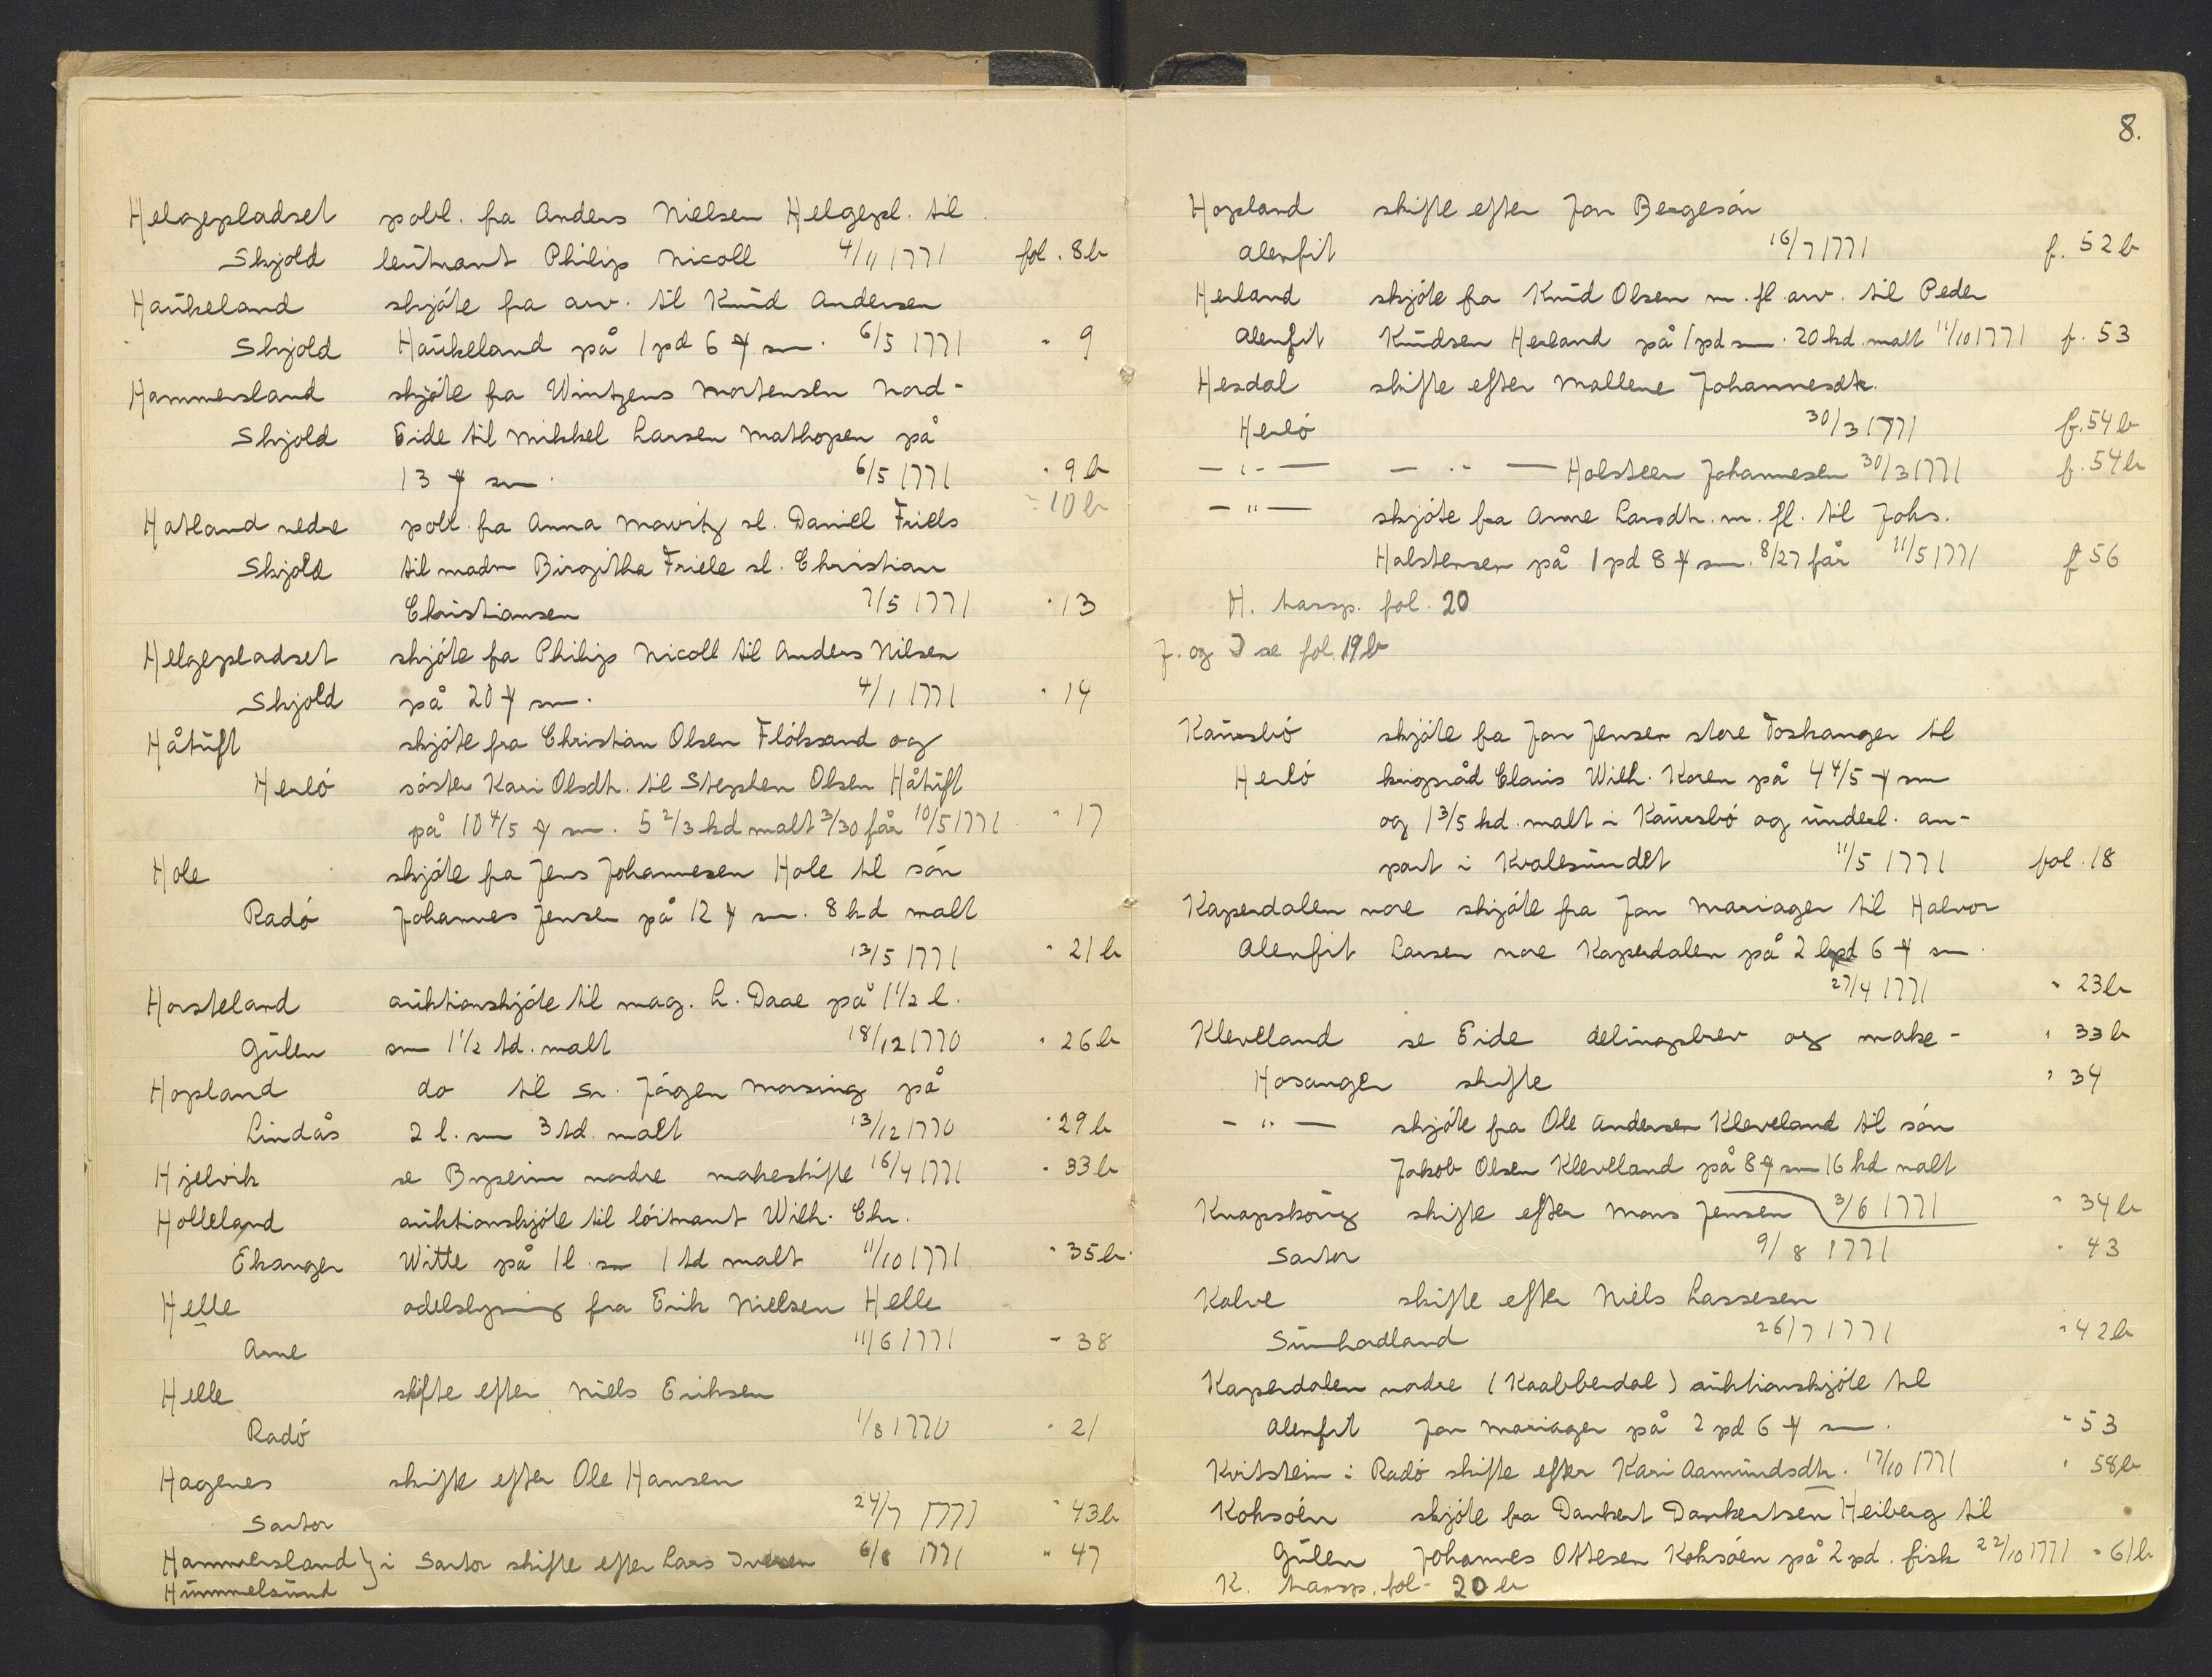 Helgepladset pobl. fra Anders Nielsen Helgepl. til
Skjold leutnant Philip Nicoll 4/11 1771 fol. 8b
Haukeland skjóte fra arv. til Knud Andersen
Skjold Haukeland på 1 pd 6 ♃ sm. 6/5 1771 " 9
Hammersland skjóte fra Wintzens Mortensen Nord-
Skjold Eide til Mikkel Larsen Mathopen på
13 ♃ sm. 6/5 1771 " 9b
" 10b
Hatland nedre pobl. fra Anna Mowitz sl. Daniel Friels
Skjold til madm Birgitha Friele sl. Christian
Christiansen 7/5 1771 " 13
Helgepladset skjóte fra Philip Nicoll til Anders Nilsen
Skjold på 20 ♃ sm. 4/1 1771 " 14
Håtuft skjóte fra Christian Olsen Flóksand og
Herló sóster Kari Olsdtr. til Stephen Olsen Håtuft
på 10 4/5 ♃ sm. 5 2/3 kd malt 3/30 får 10/5 1771 " 17
Hole skjóte fra Jens Johannesen Hole til són
Radó Johannes Jensen på 12 ♃ sm. 8 kd malt
13/5 1771 " 21b
Horsteland auktionskjóte til mag. L. Daae på 1 1/2 l.
Gulen sm 1 1/2 td. malt 18/12 1770 " 26b
Hopland do til Sr. Jórgen Morsing på
Lindås 2 l. sm 3 td. malt 13/12 1770 " 29b
Hjelvik se Byseim nodre makeskifte 16/4 1771 " 33b
Holleland auktionskjóte til lóitnant Wilh. Chr.
Ekanger Witte på 1 l. sm 1 td malt 11/10 1771 " 35b
Helle odelslysning fra Erik Nielsen Helle
Arne 11/6 1771 " 38
Helle skifte efter Niels Eriksen
Radó 1/8 1770 " 21
Hagenes skifte efter Ole Hansen
Sartor 24/7 1771 " 43b
Hammersland } i Sartor skifte efter Lars Iversen 6/8 1771 " 47
Hummelsund
8.
Hopland skifte efter Jon Bergesón
Alenfit 16/7 1771 f. 52b
Herland skjóte fra Knud Olsen m. fl. arv. til Peder
Alenfit Knudsen Herland på 1 pd sm. 20 kd. malt 11/10 1771 f. 53
Hesdal skifte efter Mallene Johannesdtr.
Herló 30/3 1771 f. 54b
— " — — " — Holsteen Johannesen 30/3 1771 f. 54b
— " — skjóte fra Anne Larsdtr. m. fl. til Johs.
Holstensen på 1 pd 8 ♃ sm. 8/27 får 11/5 1771 f 56
H. transp. fol. 20
J. og I se fol. 19b
Kaursbó skjóte fra Jon Jensen store Toskanger til
Herló krigsråd Claus Wilh. Koren på 4 4/5 ♃ sm
og 1 3/5 kd. malt i Kaursbó og underl. an-
part i Kvalesundet 11/5 1771 fol. 18
Kaperdalen nore skjóte fra Jon Mariager til Halvor
Alenfit Larsen nore Kaperdalen på 2 lpd 6 ♃ sm.
27/4 1771 " 23b
Klevelland se Eide delingsbrev og make- " 33b
Hosanger skifte " 34
— " — skjóte fra Ole Andersen Kleveland til són
Jakob Olsen Klevelland på 8 ♃ sm 16 kd malt
3/6 1771 " 34b
Knapskoug skifte efter Mons Jensen
Sartor 9/8 1771 " 43
Kalve skifte efter Niels Lassesen
Sunhordland 26/7 1771 " 42b
Kaperdalen nodre (Kaabberdal) auktionskjóte til
Alenfit Jon Mariager på 2 pd 6 ♃ sm. " 53
Kvitstein i Radó skifte efter Kari Aamundsdtr. 17/10 1771 " 58b
Koksóen skjóte fra Dankert Dankertsen Heiberg til
Gulen Johannes Ottesen Koksóen på 2 pd. fisk 22/10 1771 " 61b
K. transp. fol. 20b